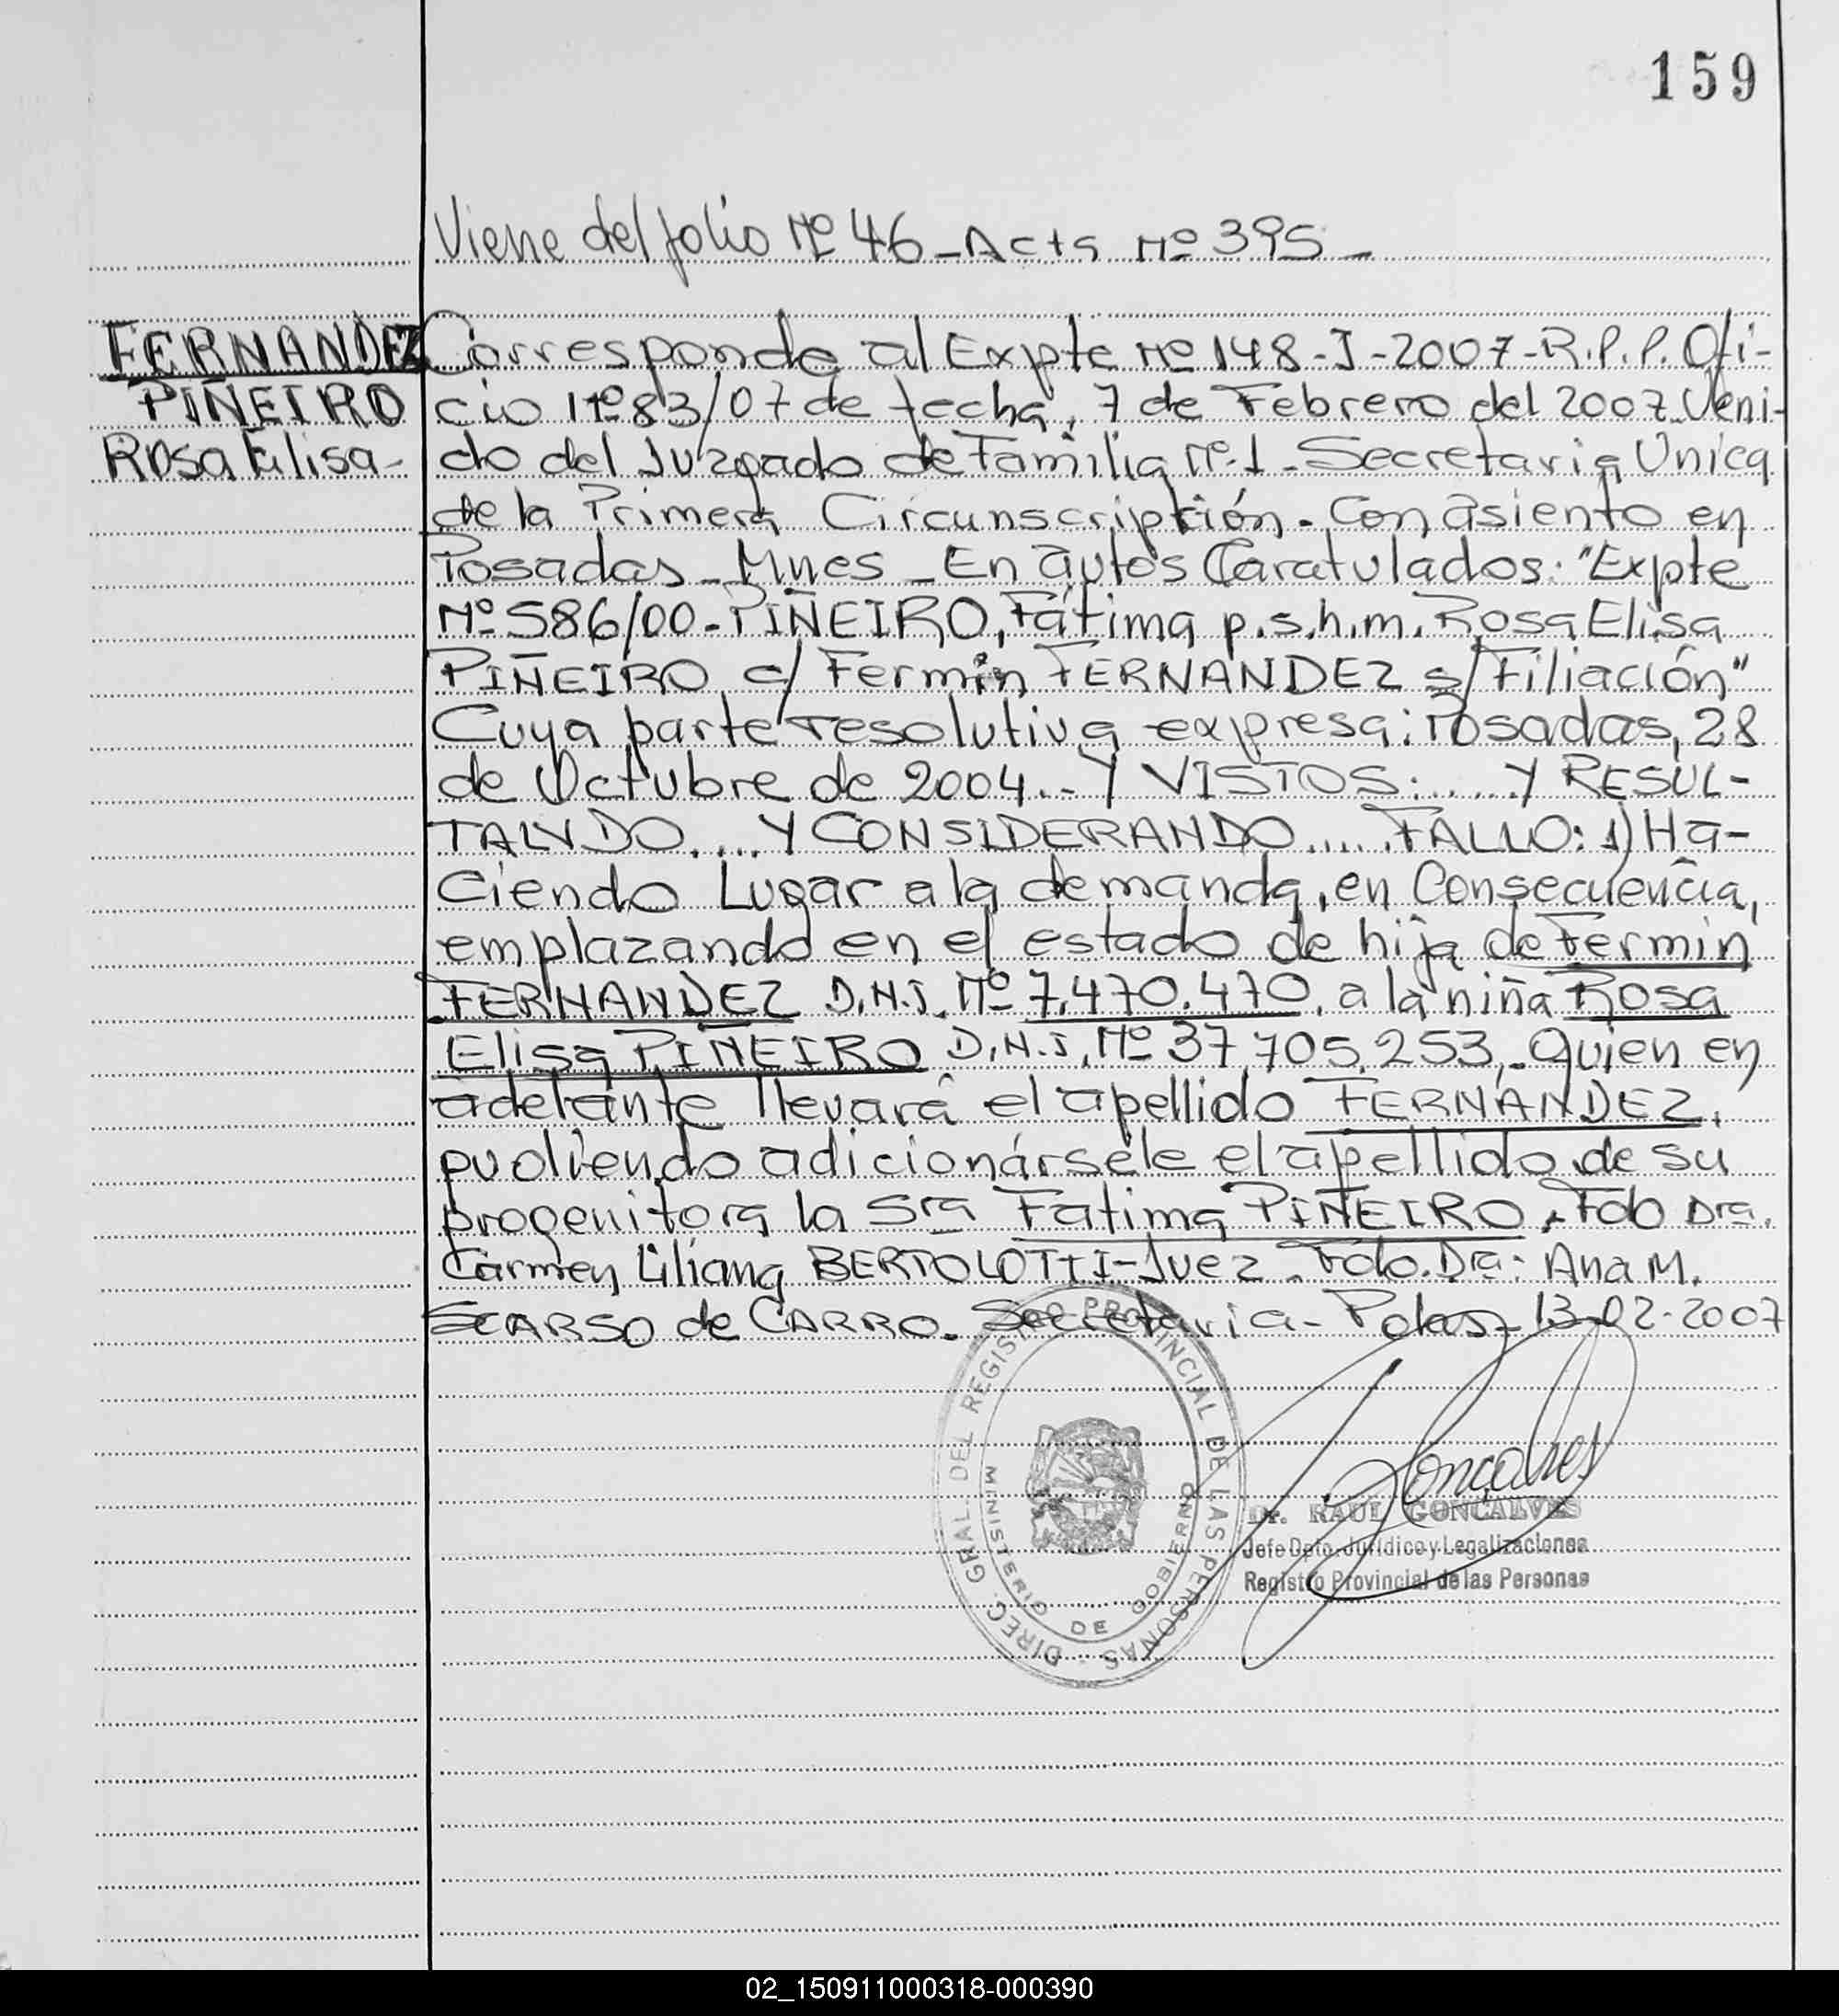 159
Viene del folio Nº 46 - Acta Nº 395 -
FERNANDEZ
PIÑEIRO
Rosa Elisa -
Corresponde al Expte Nº 148-I-2007-R.P.P. Ofi-
cio Nº 83/07 de fecha, 7 de Febrero del 2007. Veni-
do del Juzgado de Familia Nº 1 - Secretaria Unica
de la Primera Circunscripción. Con asiento en
Posadas - Mnes - En autos Caratulados: "Expte
Nº 586/00 - PIÑEIRO, Fátima p.s.h.m. Rosa Elisa
PIÑEIRO c/ Fermin FERNANDEZ s/ Filiación"
Cuya parte resolutiva expresa: Posadas, 28
de Octubre de 2004... Y VISTOS:..... Y RESUL-
TANDO..... Y CONSIDERANDO..... FALLO: 1) Ha-
ciendo Lugar a la demanda, en Consecuencia,
emplazando en el estado de hija de Fermin
FERNANDEZ D.N.I. Nº 7.470.470, a la niña Rosa
Elisa PIÑEIRO D.N.I. Nº 37.705.253,- Quien en
adelante llevará el apellido FERNÁNDEZ,
pudiendo adicionársele el apellido de su
progenitora la Sra Fatima PIÑEIRO. Fdo Dra.
Carmen Liliana BERTOLOTTI - Juez. Fdo. Dra: Ana M.
SCARSO de CARRO. Secretaria - Pdas, 13-02-2007
DIREC. GRAL. DEL REGISTRO PROVINCIAL DE LAS PERSONAS
MINISTERIO DE GOBIERNO
Gonçalves
Dr. RAUL GONCALVES
Jefe Dpto. Jurídico y Legalizaciones
Registro Provincial de las Personas
02_150911000318-000390